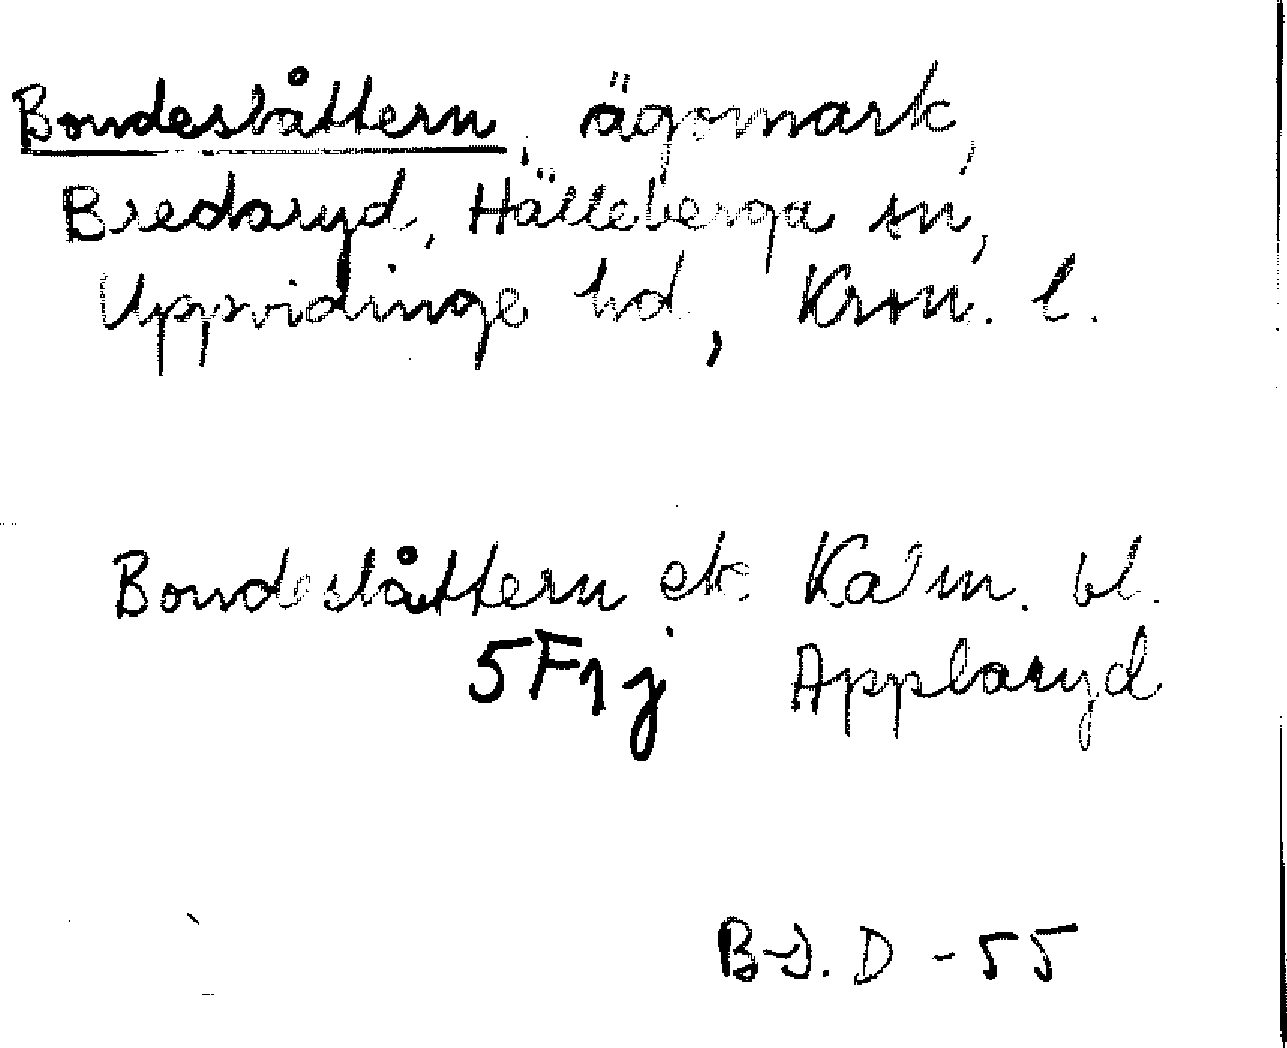 Bondeslåttern, ägomark,
Bredaryd, Hälleberga sn,
Uppvidinge hd, Kron. l.
Bondeslåttern ek. Ka'm. bl.
5F1j Applaryd
B-J. D -55